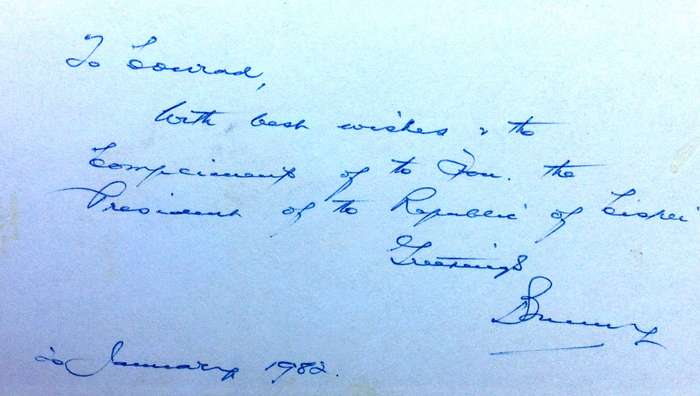 To Conrad,
With best wishes & the
Compliments of to Hon. the
President of the Republic of Ciskei
Greetings
20 January 1982.